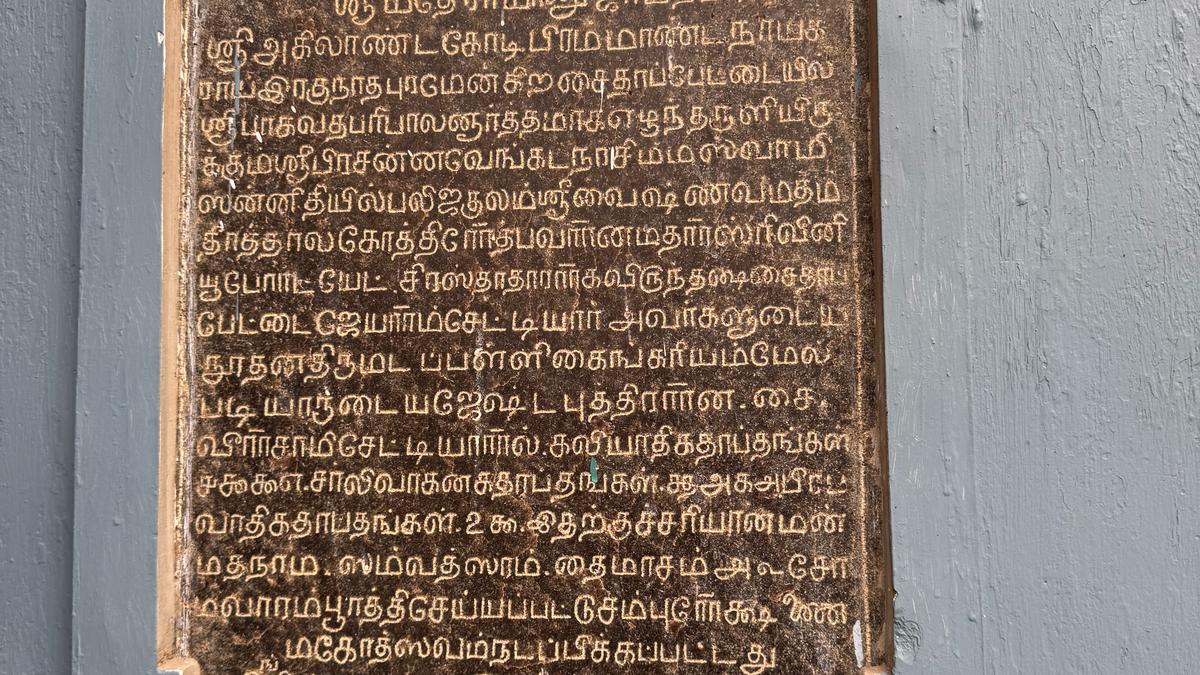 ஸ்ரீமதேராமாநுஜாய
ஸ்ரீஅகிலாண்டகோடிபிரம்மாண்டநாயக
ராயஇரகுநாதபுரமேன்கீறசைதாப்பேட்டையில
ஸ்ரீபாகவதபரிபாலனார்த்தமாகஎழுந்தருளியிரு
க்குமஸ்ரீபிரசனனவேங்கடநரசிம்மஸ்வாமி
ஸன்னிதியில்பலிஜகுலம்ஸ்ரீவைஷ்ணவமதம
தாத்தாலகோத்திரோத்பவரானமதராஸ்ரிவீனி
யூபோர்ட்யேட். சிரஸ்தாதாராகவிருந்தஷை
பேட்டைஜெயராம்சேட்டியார் அவர்களுடைய
நூதனதிருமடப்பள்ளிகைங்கரியம்மேல்
படியாருடையஜேஷ்டபுத்திரரான. சை.
வீராசாமிசேட்டியாரால். கலியாதிகதாபதங்கள
௪௯௯௭. சாலிவாகனசுதாபதங்கள். ௲௮௱௧௮பிரப
வாதிகதாபதங்கள். ௨௯. இதற்குச்சரியானமன்
மதநாம. ஸம்வத்ஸரம். தைமாசம் ௮௳ சோ
மவாரம்பூர்த்திசெய்யப்பட்டுசம்புரோக்ஷணை
மகோத்ஸவம்நடப்பிக்கப்பட்டது